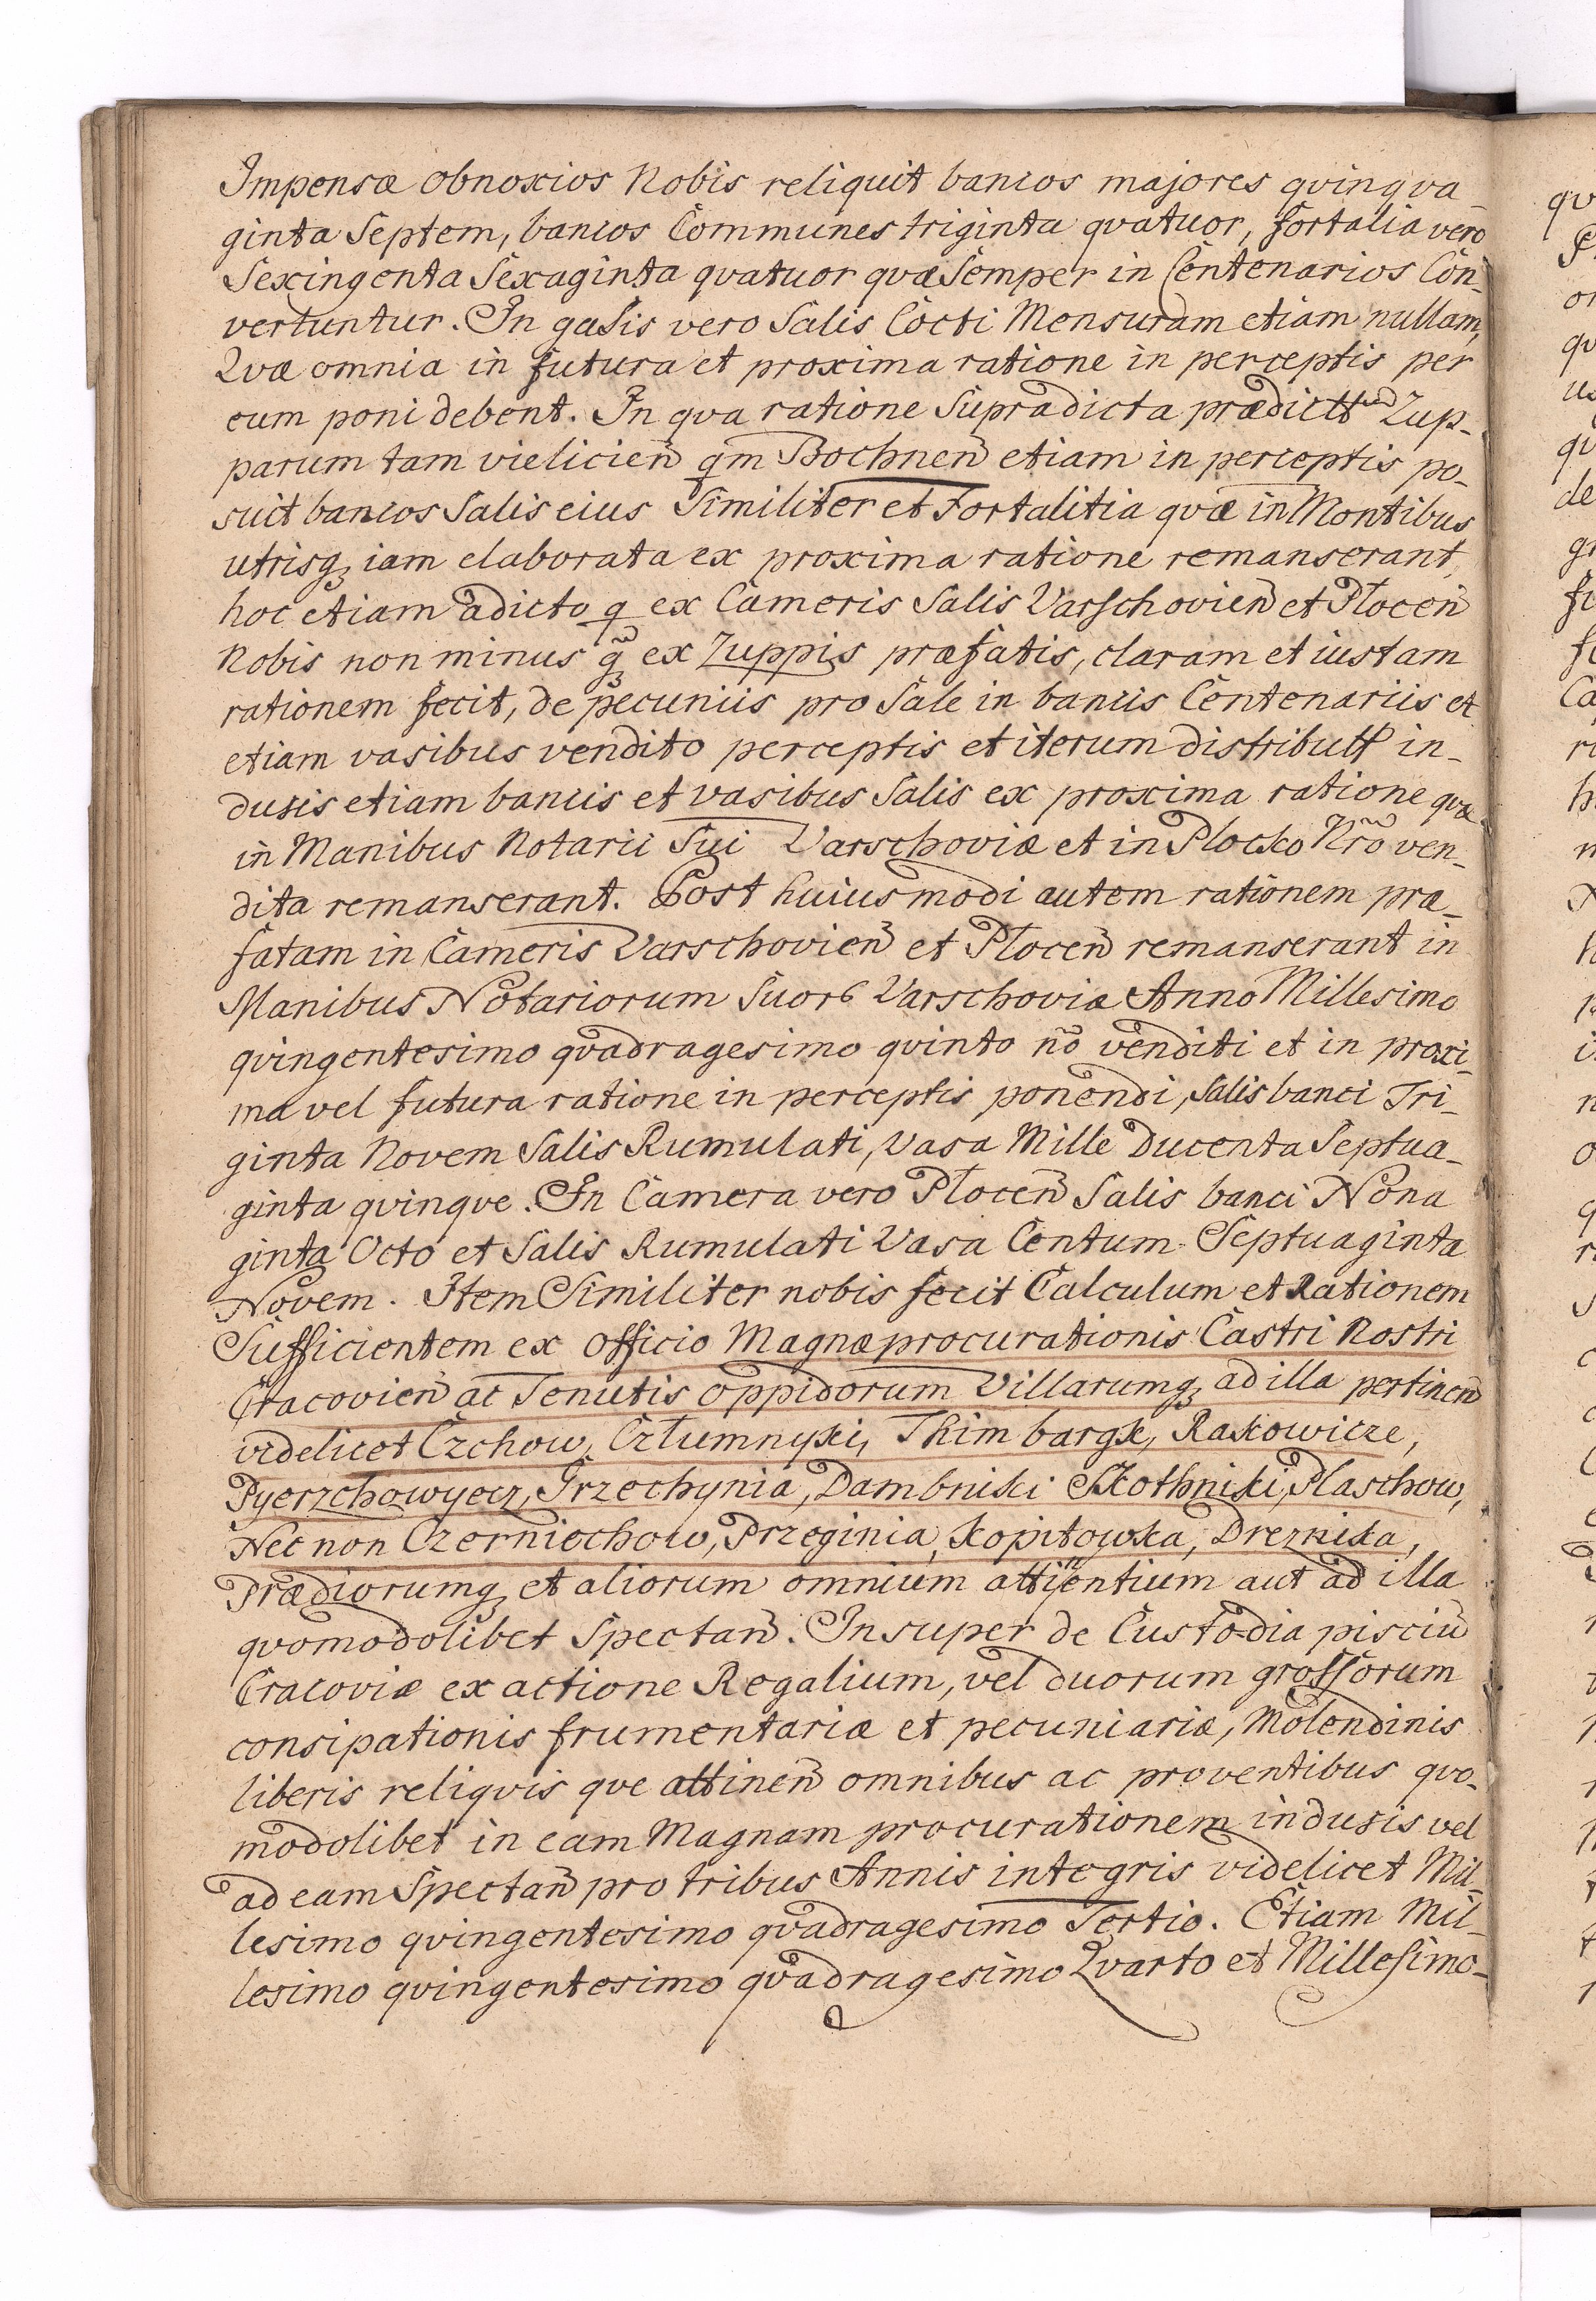 Impensæ obnoxios Nobis reliquit bancos majores qvinqva_
ginta Septem, bancos Communes triginta qvatuor, fortalia vero
Sexingenta Sexaginta qvatuor qvæ Semper in Centenarios Con_
vertuntur. In gasis vero Salis Cocti Mensuram etiam nullam,
Qvæ omnia in futura et proxima ratione in perceptis per
eum poni debent. In qva ratione Supradicta prædictt Zup_
parum tam vielicien̄ qm̄ Bochnen̄ etiam in perceptis po_
suit bancos Salis eius Similiter et Fortalitia qvæ in Montibus
utrisqꝫ iam elaborata ex proxima ratione remanserant,
hoc etiam adicto q ex Cameris Salis Varschovien̄ et Plocen̄
Nobis non minus qꝫ̃ ex Zuppis præfatis, claram et iustam
rationem fecit, de pecuniis pro Sale in bancis Centenariis et
etiam vasibus vendito perceptis et iterum distributt in_
dusis etiam bancis et vasibus Salis ex proxima ratione qvæ
in Manibus Notarii Sui Varschoviæ et in Plocko Nr̃o ven_
dita remanserant. Post huiusmodi autem rationem præ_
fatam in Cameris Varschovien̄ et Plocen̄ remanserant in
Manibus Notariorum Suor Varschoviæ Anno Millesimo
qvingentesimo qvadragesimo qvinto nõ venditi et in proxi_
ma vel futura ratione in perceptis ponendi, Salis banci Tri_
ginta Novem Salis Rumulati, Vasa Mille Ducenta Septua_
ginta qvinqve. In Camera vero Plocen̄ Salis banci Nona
ginta Octo et Salis Rumulati Vasa Centum Septuaginta
Novem. Item Similiter nobis fecit Calculum et Rationem
Sufficientem ex officio Magnæ procurationis Castri Nostri
Cracovien̄ ac Tenutis oppidorum Villarumqꝫ ad illa pertinen̄
videlicet Czchow, Czlumnyki, Thimbargk, Rakowicze,
Pyerzchowyecz, Grzechynia, Dambniki Skothniki, Plaschow,
Nec non Czerniechow, Przeginia, Kopitowka, Dreznika,
Prædiorumqꝫ et aliorum omnium attinentium aut ad illa
qvomodolibet Spectan̄. Insuper de Custodia pisciũ
Cracoviæ exactione Regalium, vel duorum grossorum
consipationis frumentariæ et pecuniariæ, Molendinis
liberis reliqvis qve attinen̄ omnibus ac proventibus qvo_
modolibet in eam Magnam procurationem indusis vel
ad eam Spectan̄ pro tribus Annis integris videlicet Mil_
lesimo qvingentesimo qvadragesimo Tertio. Etiam Mil_
lesimo qvingentesimo qvadragesimo Qvarto et Millesimo_